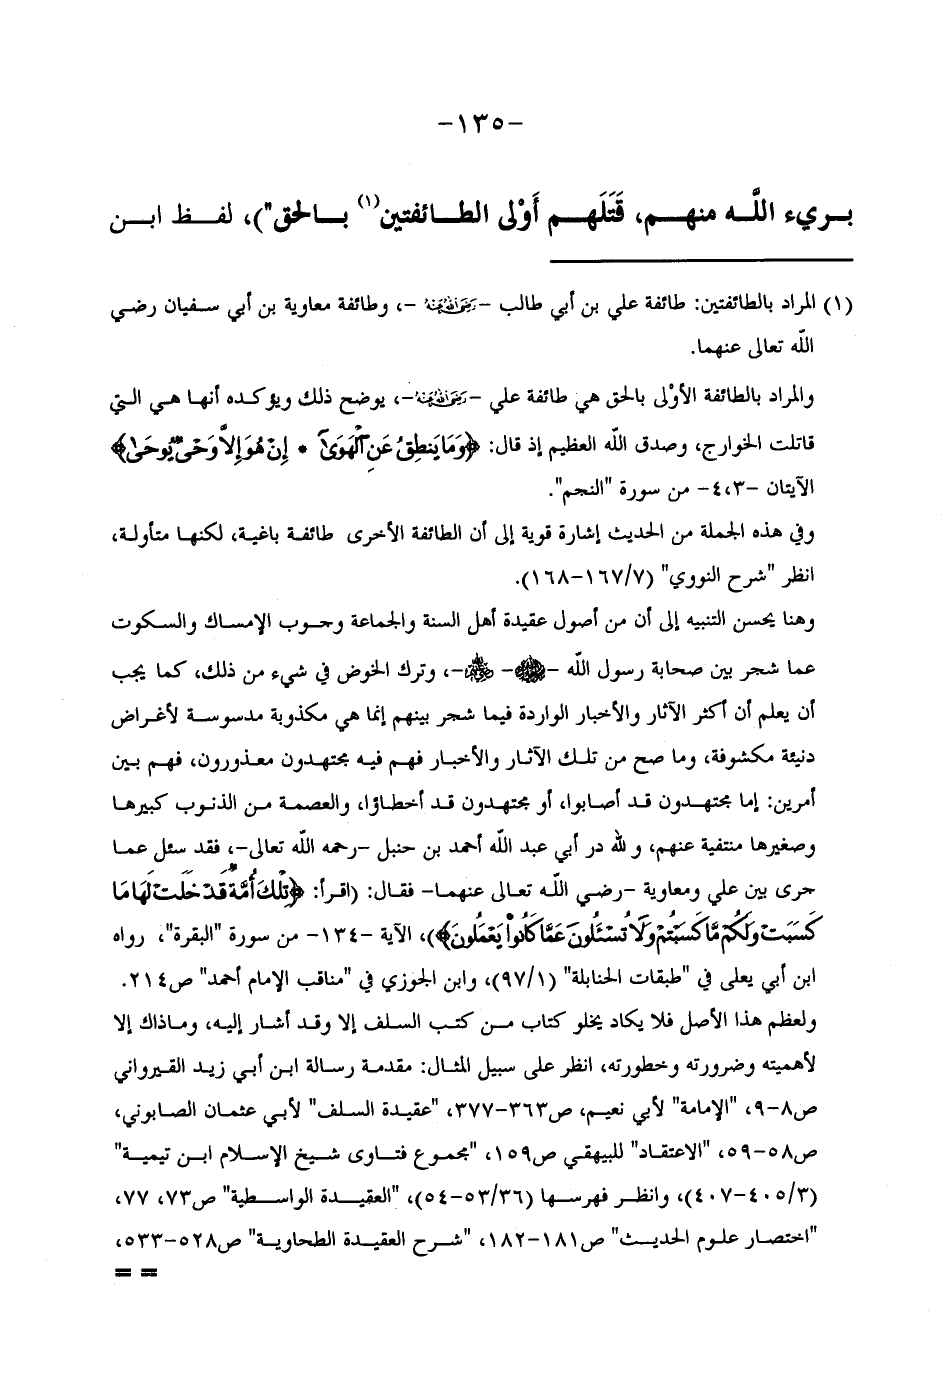 -١٣٥-
بريء الله منهم، قَتَلَهم أَوْلى الطائفتين(١) بالحق")، لفظ ابن
(١) المراد بالطائفتين: طائفة علي بن أبي طالب -رَضِيَ اللهُ عَنْهُ-، وطائفة معاوية بن أبي سفيان رضي
الله تعالى عنهما.
والمراد بالطائفة الأوْلى بالحق هي طائفة علي -رَضِيَ اللهُ عَنْهُ-، يوضح ذلك ويؤكده أنها هي التي
قاتلت الخوارج، وصدق الله العظيم إذ قال: ﴿وَمَا يَنطِقُ عَنِ الْهَوَىٰ * إِنْ هُوَ إِلَّا وَحْيٌ يُوحَىٰ﴾
الآيتان -٤،٣- من سورة "النجم".
وفي هذه الجملة من الحديث إشارة قوية إلى أن الطائفة الأخرى طائفة باغية، لكنها متأولة،
انظر "شرح النووي" (١٦٧/٧-١٦٨).
وهنا يحسن التنبيه إلى أن من أصول عقيدة أهل السنة والجماعة وجوب الإمساك والسكوت
عما شجر بين صحابة رسول الله -ﷺ- -رضي الله عنهم-، وترك الخوض في شيء من ذلك، كما يجب
أن يعلم أن أكثر الآثار والأخبار الواردة فيما شجر بينهم إنما هي مكذوبة مدسوسة لأغراض
دنيئة مكشوفة، وما صح من تلك الآثار والأخبار فهم فيه مجتهدون معذورون، فهم بين
أمرين: إما مجتهدون قد أصابوا، أو مجتهدون قد أخطاؤا، والعصمة من الذنوب كبيرها
وصغيرها منتفية عنهم، ولله در أبي عبد الله أحمد بن حنبل -رحمه الله تعالى-، فقد سئل عما
جرى بين علي ومعاوية -رضي الله تعالى عنهما- فقال: (اقرأ: ﴿تِلْكَ أُمَّةٌ قَدْ خَلَتْ لَهَا مَا
كَسَبَتْ وَلَكُم مَّا كَسَبْتُمْ وَلَا تُسْئَلُونَ عَمَّا كَانُوا يَعْمَلُونَ﴾)، الآية -١٣٤- من سورة "البقرة"، رواه
ابن أبي يعلى في "طبقات الحنابلة" (٩٧/١)، وابن الجوزي في "مناقب الإمام أحمد" ص٢١٤.
ولعظم هذا الأصل فلا يكاد يخلو كتاب من كتب السلف إلا وقد أشار إليه، وماذاك إلا
لأهميته وضرورته وخطورته، انظر على سبيل المثال: مقدمة رسالة ابن أبي زيد القيرواني
ص٨-٩، "الإمامة" لأبي نعيم، ص٣٦٣-٣٧٧، "عقيدة السلف" لأبي عثمان الصابوني،
ص٥٨-٥٩، "الاعتقاد" للبيهقي ص١٥٩، "مجموع فتاوى شيخ الإسلام ابن تيمية"
(٤٠٥/٣-٤٠٧)، وانظر فهرسها (٥٣/٣٦-٥٤)، "العقيدة الواسطية" ص٧٣، ٧٧،
"اختصار علوم الحديث" ص١٨١-١٨٢، "شرح العقيدة الطحاوية" ص٥٢٨-٥٣٣،
= =